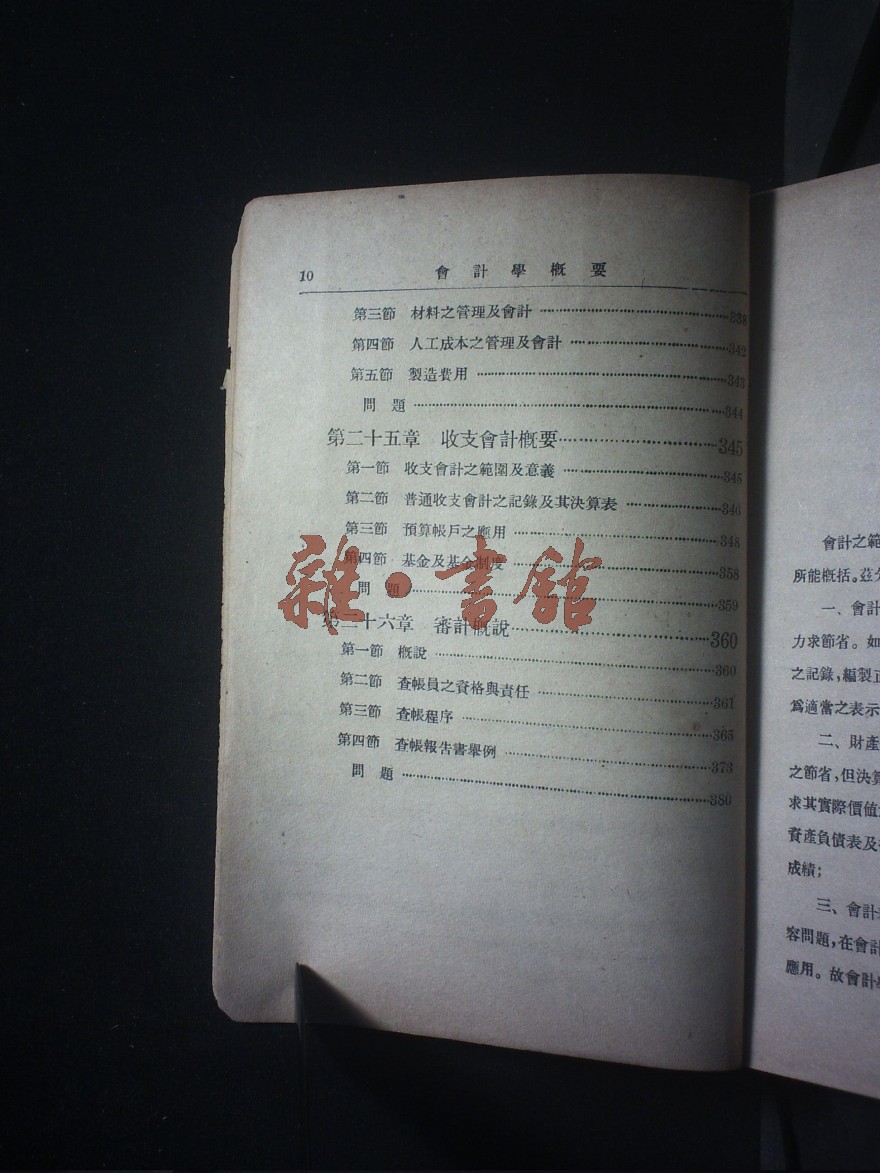 10 會計學概要
第三節 材料之管理及會計 338
第四節 人工成本之管理及會計 342
第五節 製造費用 343
問題 344
第二十五章 收支會計概要 345
第一節 收支會計之範圍及意義 345
第二節 普通收支會計之記錄及其決算表 346
第三節 預算帳戶之應用 348
第四節 基金及基金制度 358
問題 359
第二十六章 審計概說 360
第一節 概說 360
第二節 查帳員之資格與責任 361
第三節 查帳程序 365
第四節 查帳報告書舉例 373
問題 380
雜·書館
會計之範
所能概括。茲
一、會計
力求節省。如
之記錄,編製正
爲適當之表示
二、財產
之節省,但決算
求其實際價值
資產負債表及
成績;
三、會計
容問題,在會計
應用。故會計學